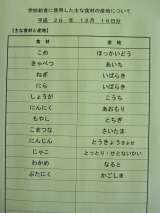 学校給食に使用した主な食材の産地について
平成 26年 12月 16日分
【主な食材の産地】
食材 産地
こめ ほっかいどう
きゃべつ あいち
ねぎ いばらき
にら いばらき
しょうが こうち
にんにく あおもり
もやし とちぎ
こまつな さいたま
にんじん とうきょう
じゃこ
わかめ なると
ぶたにく かごしま